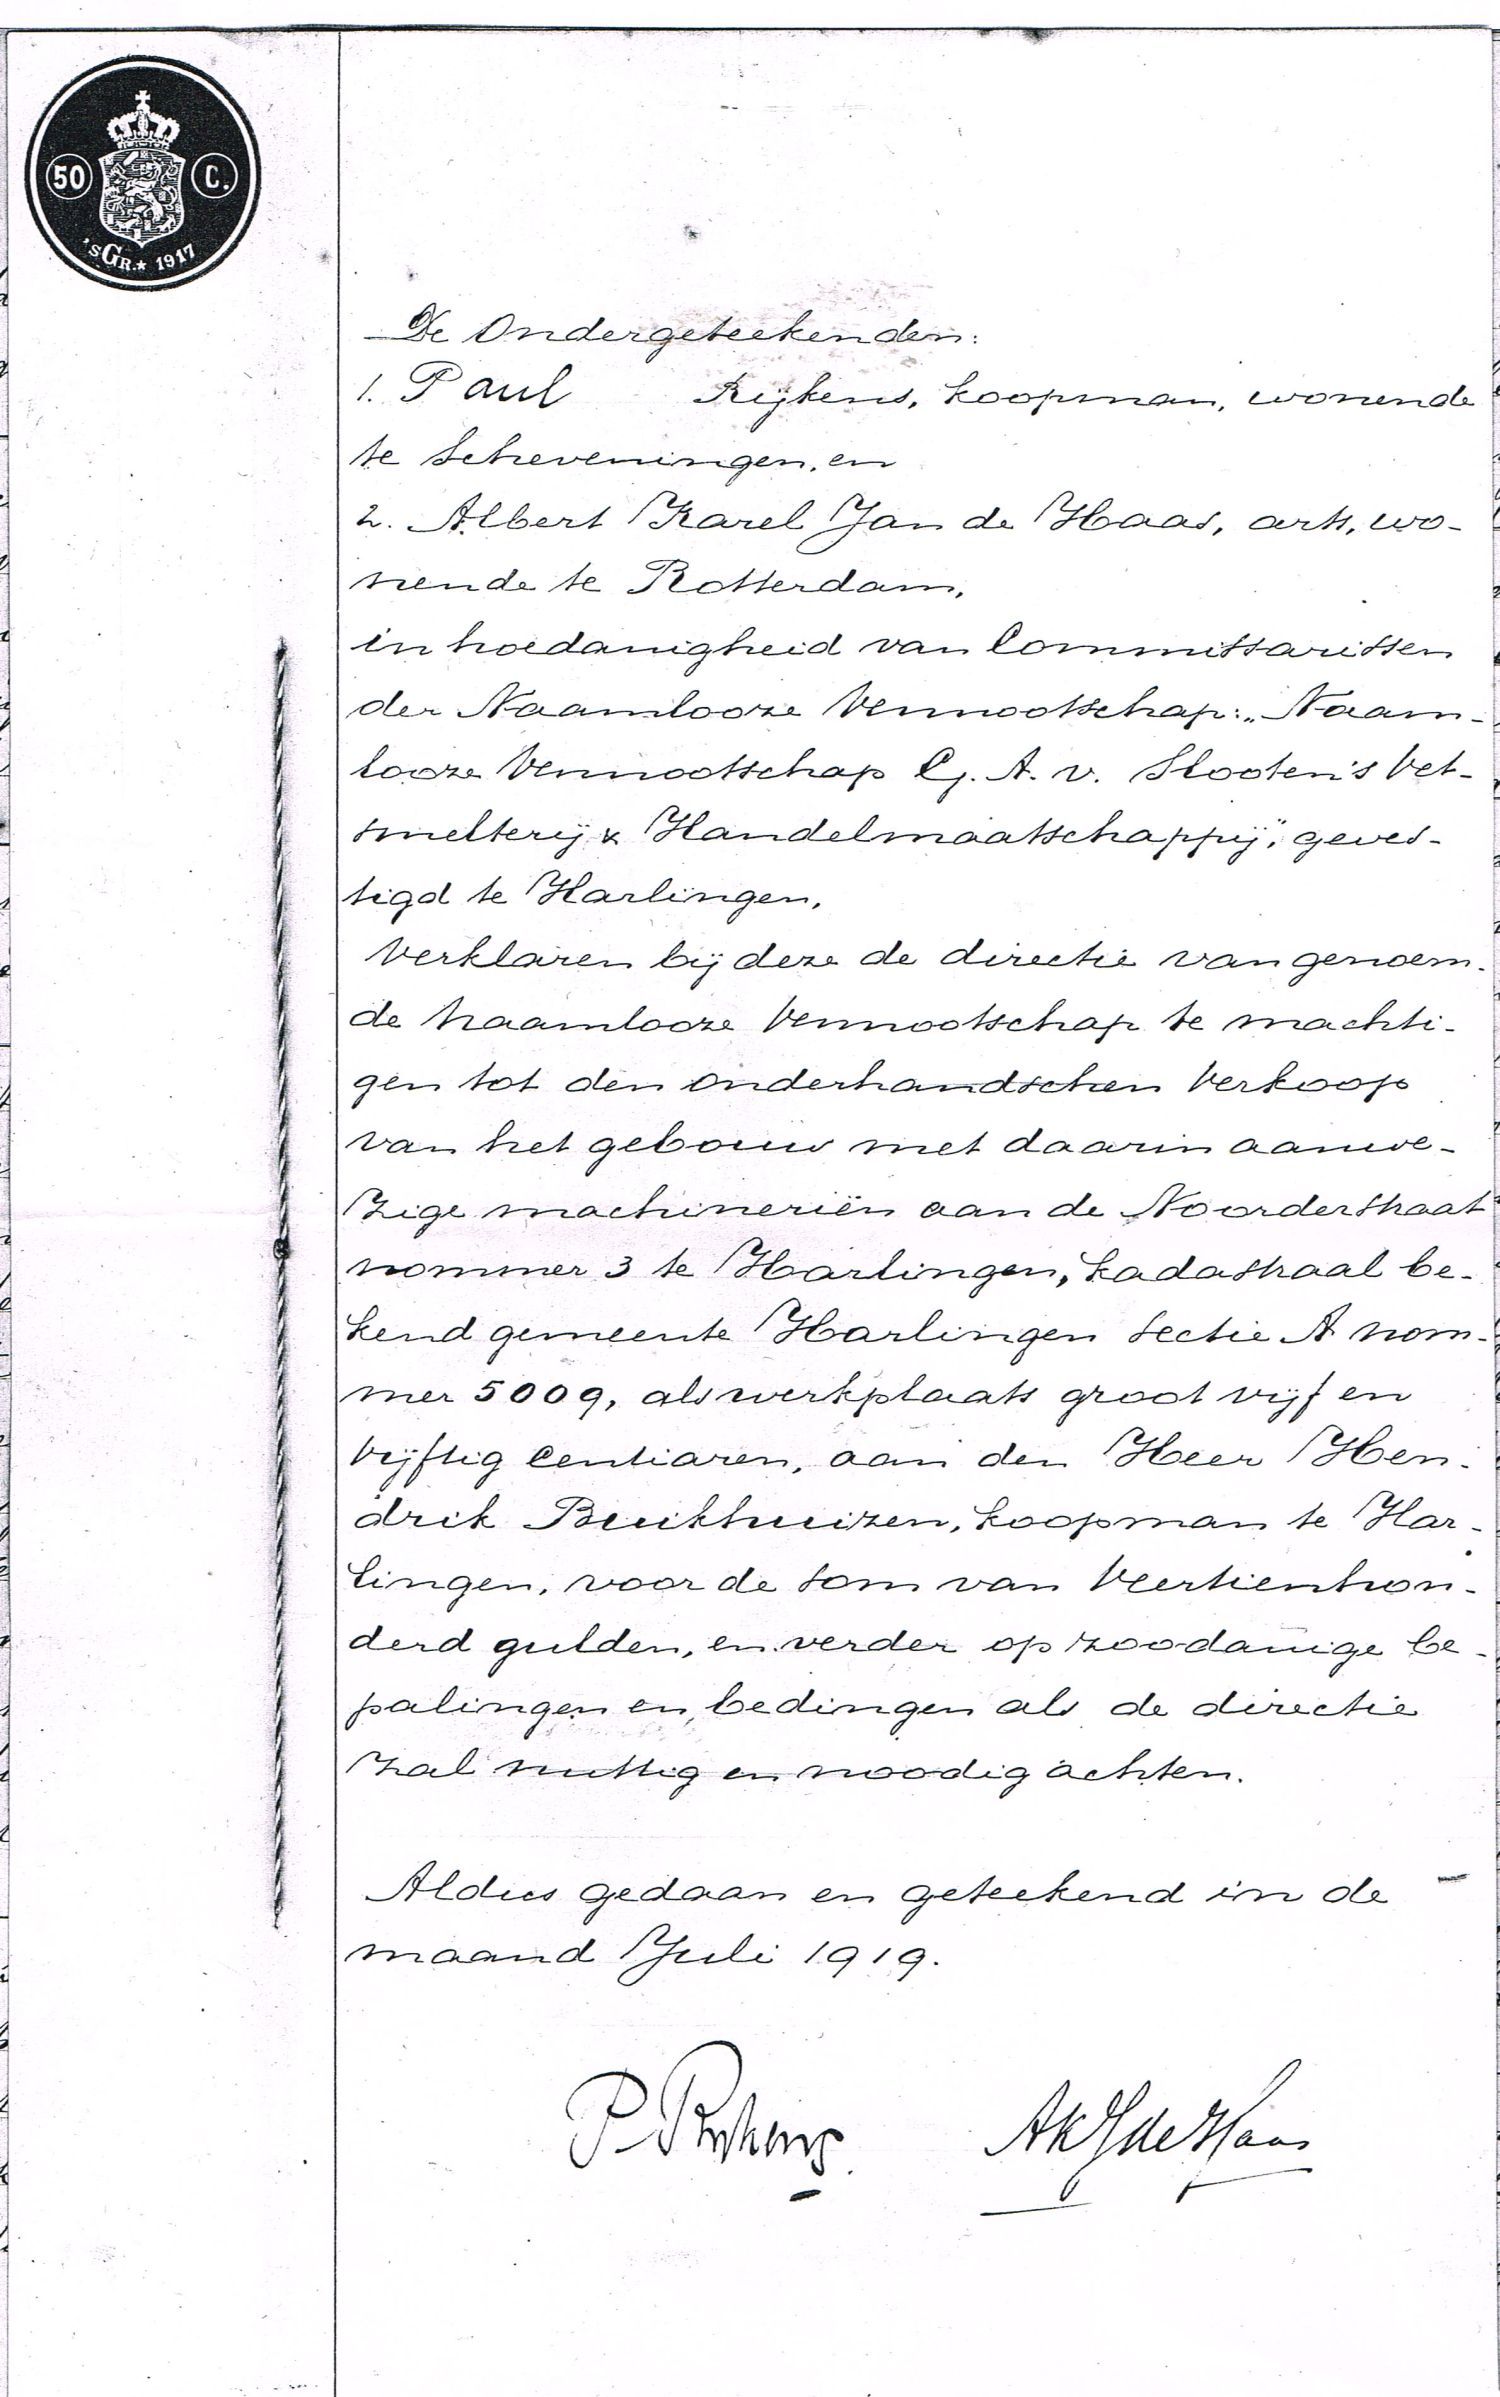 50 C.
'sGR.★ 1917
De Ondergeteekenden:
1. Paul Rijkens, koopman, wonende
te Scheveningen, en
2. Albert Karel Jan de Haas, arts, wo-
nende te Rotterdam,
in hoedanigheid van Commissarissen
der Naamlooze Vennootschap: „Naam-
looze Vennootschap C. A. v. Slooten's Vet-
smelterij & Handelmaatschappij", geves-
tigd te Harlingen,
Verklaren bij deze de directie van genoem-
de naamlooze Vennootschap te machti-
gen tot den onderhandschen Verkoop
van het gebouw met daarin aanwe-
zige machineriën aan de Noorderstraat
nommer 3 te Harlingen, kadastraal be-
kend gemeente Harlingen sectie A nom-
mer 5009, als werkplaats groot vijf en
vijftig Centiaren, aan den Heer Hen-
drik Buikhuizen, koopman te Har-
lingen, voor de som van Veertienhon-
derd gulden, en verder op zoodanige be-
palingen en bedingen als de directie
zal nuttig en noodig achten.
Aldus gedaan en geteekend in de
maand Juli 1919.
P. Rijkens AKJ de Haas